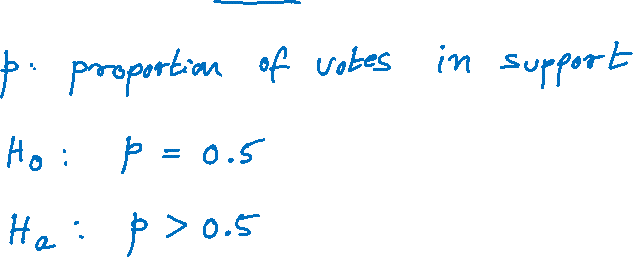 p: proportion of votes in support
H₀: p = 0.5
Hₐ: p > 0.5